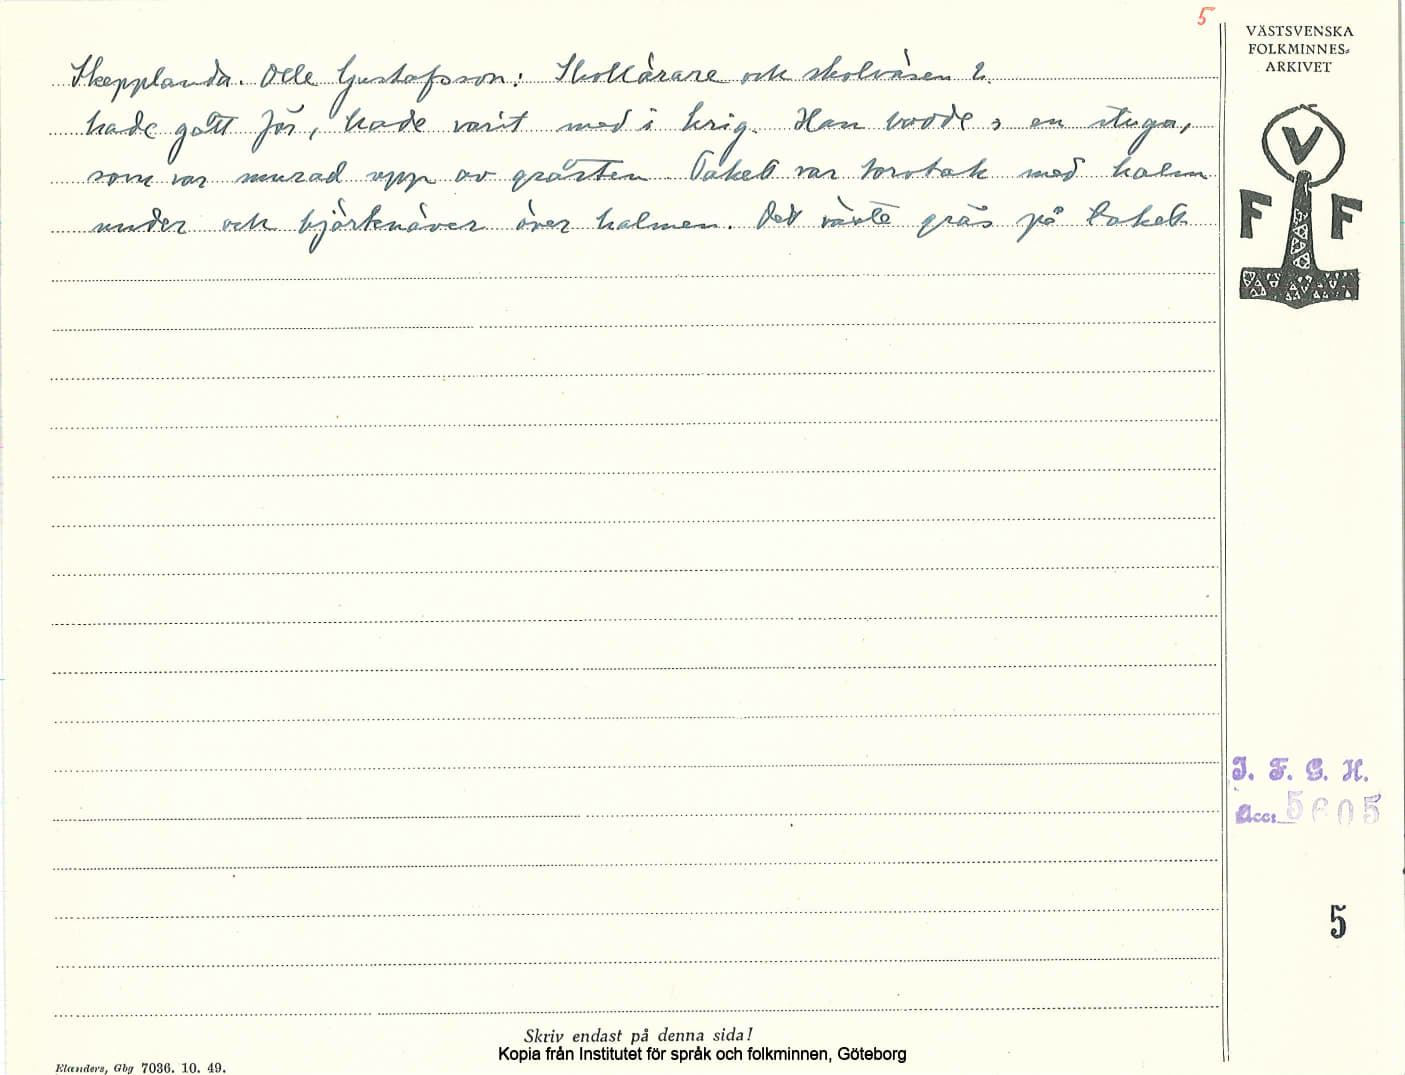 5
VÄSTSVENSKA
FOLKMINNES-
ARKIVET
Skepplanda. Olle Gustafsson: Skollärare och skolväsen 2.
hade gott för, hade varit med i krig. Han bodde i en stuga,
som var murad upp av gråsten. Taket var torvtak med halm
under och björknäver över halmen. Det växte gräs på taket
V
F F
I. F. G. H.
Acc: 5605
5
Skriv endast på denna sida!
Kopia från Institutet för språk och folkminnen, Göteborg
Elanders, Gbg 7036. 10. 49.